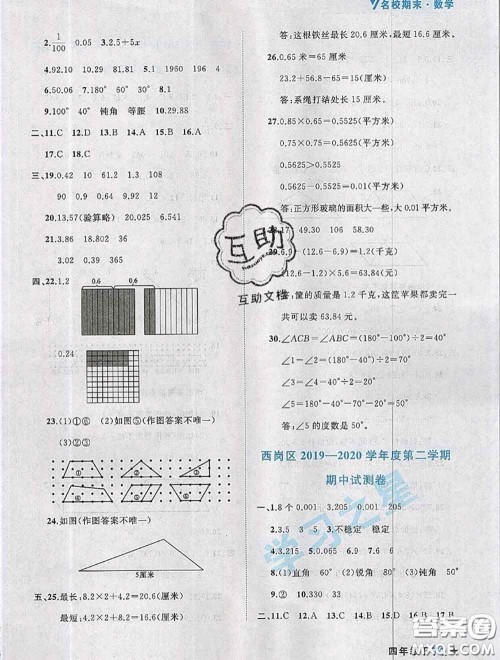 名校期末·数学
2. 1/100  0.05  3.2.5+5x
4.92.10  29.08  81.81  5.1  1960  196  4
6.50.06  7.180°  60°  30°  8.1
9.100°  40°  钝角  等腰  10.29.88
二、11.C  12.D  13.B  14.A  15.B  16.A
17.C  18.C
三、19.0.42  10  61.2  1.3  108
90  0.9  0.62  36  0
20.13.57(验算略)  20.025  6.541
21.3.86  18.802  36
3.02  0.39  365
四、22.1.2
0.6  0.6
0.24
23.(1)①⑥  (2)如图⑤(作图答案不唯一)
(3)②④
① ② ③
④ ⑤ ⑥
24.如图(作图答案不唯一)
5厘米
五、25.最长:8.2×2+4.2=20.6(厘米)
最短:4.2×2+8.2=16.6(厘米)
答:这根铁丝最长 20.6 厘米,最短 16.6 厘米。
26.0.65 米=65 厘米
23.2+56.8-65=15(厘米)
答:系绳打结处长 15 厘米。
27.0.85×0.65=0.5525(平方米)
0.75×0.75=0.5625(平方米)
0.5625>0.5525
0.5625-0.5525=0.01(平方米)
答:正方形玻璃的面积大一些,大 0.01 平方米。
49.30  106  58.30
(12.6-6.9)=1.2(千克)
×5.6=63.84(元)
答:筐的质量是 1.2 千克,这筐苹果一
共可以卖 63.84 元。
30.∠ACB=∠ABC=(180°-100°)÷2=40°
∠1=∠2=40°÷2=20°
∠3=∠4=(180°-40°)÷2=70°
∠5=180°-(70°-20°)-(180°-100°)=50°
答:∠5 的度数是 50°。
西岗区 2019—2020 学年度第二学期
期中试测卷
一、1.8个  0.001  3.205  0.001  205
2.3.5  3  5  3.不稳定  稳定  3
4.3.215  5.0.08  6.130.06  7.4  8.0
9.(1)直角  60°  (2)锐角  80°  (3)钝角  50°
10.
二、11.C  12.A  13.C  14.B  15.A  16.B  17.B
互助
互助文档
学习之星
四年